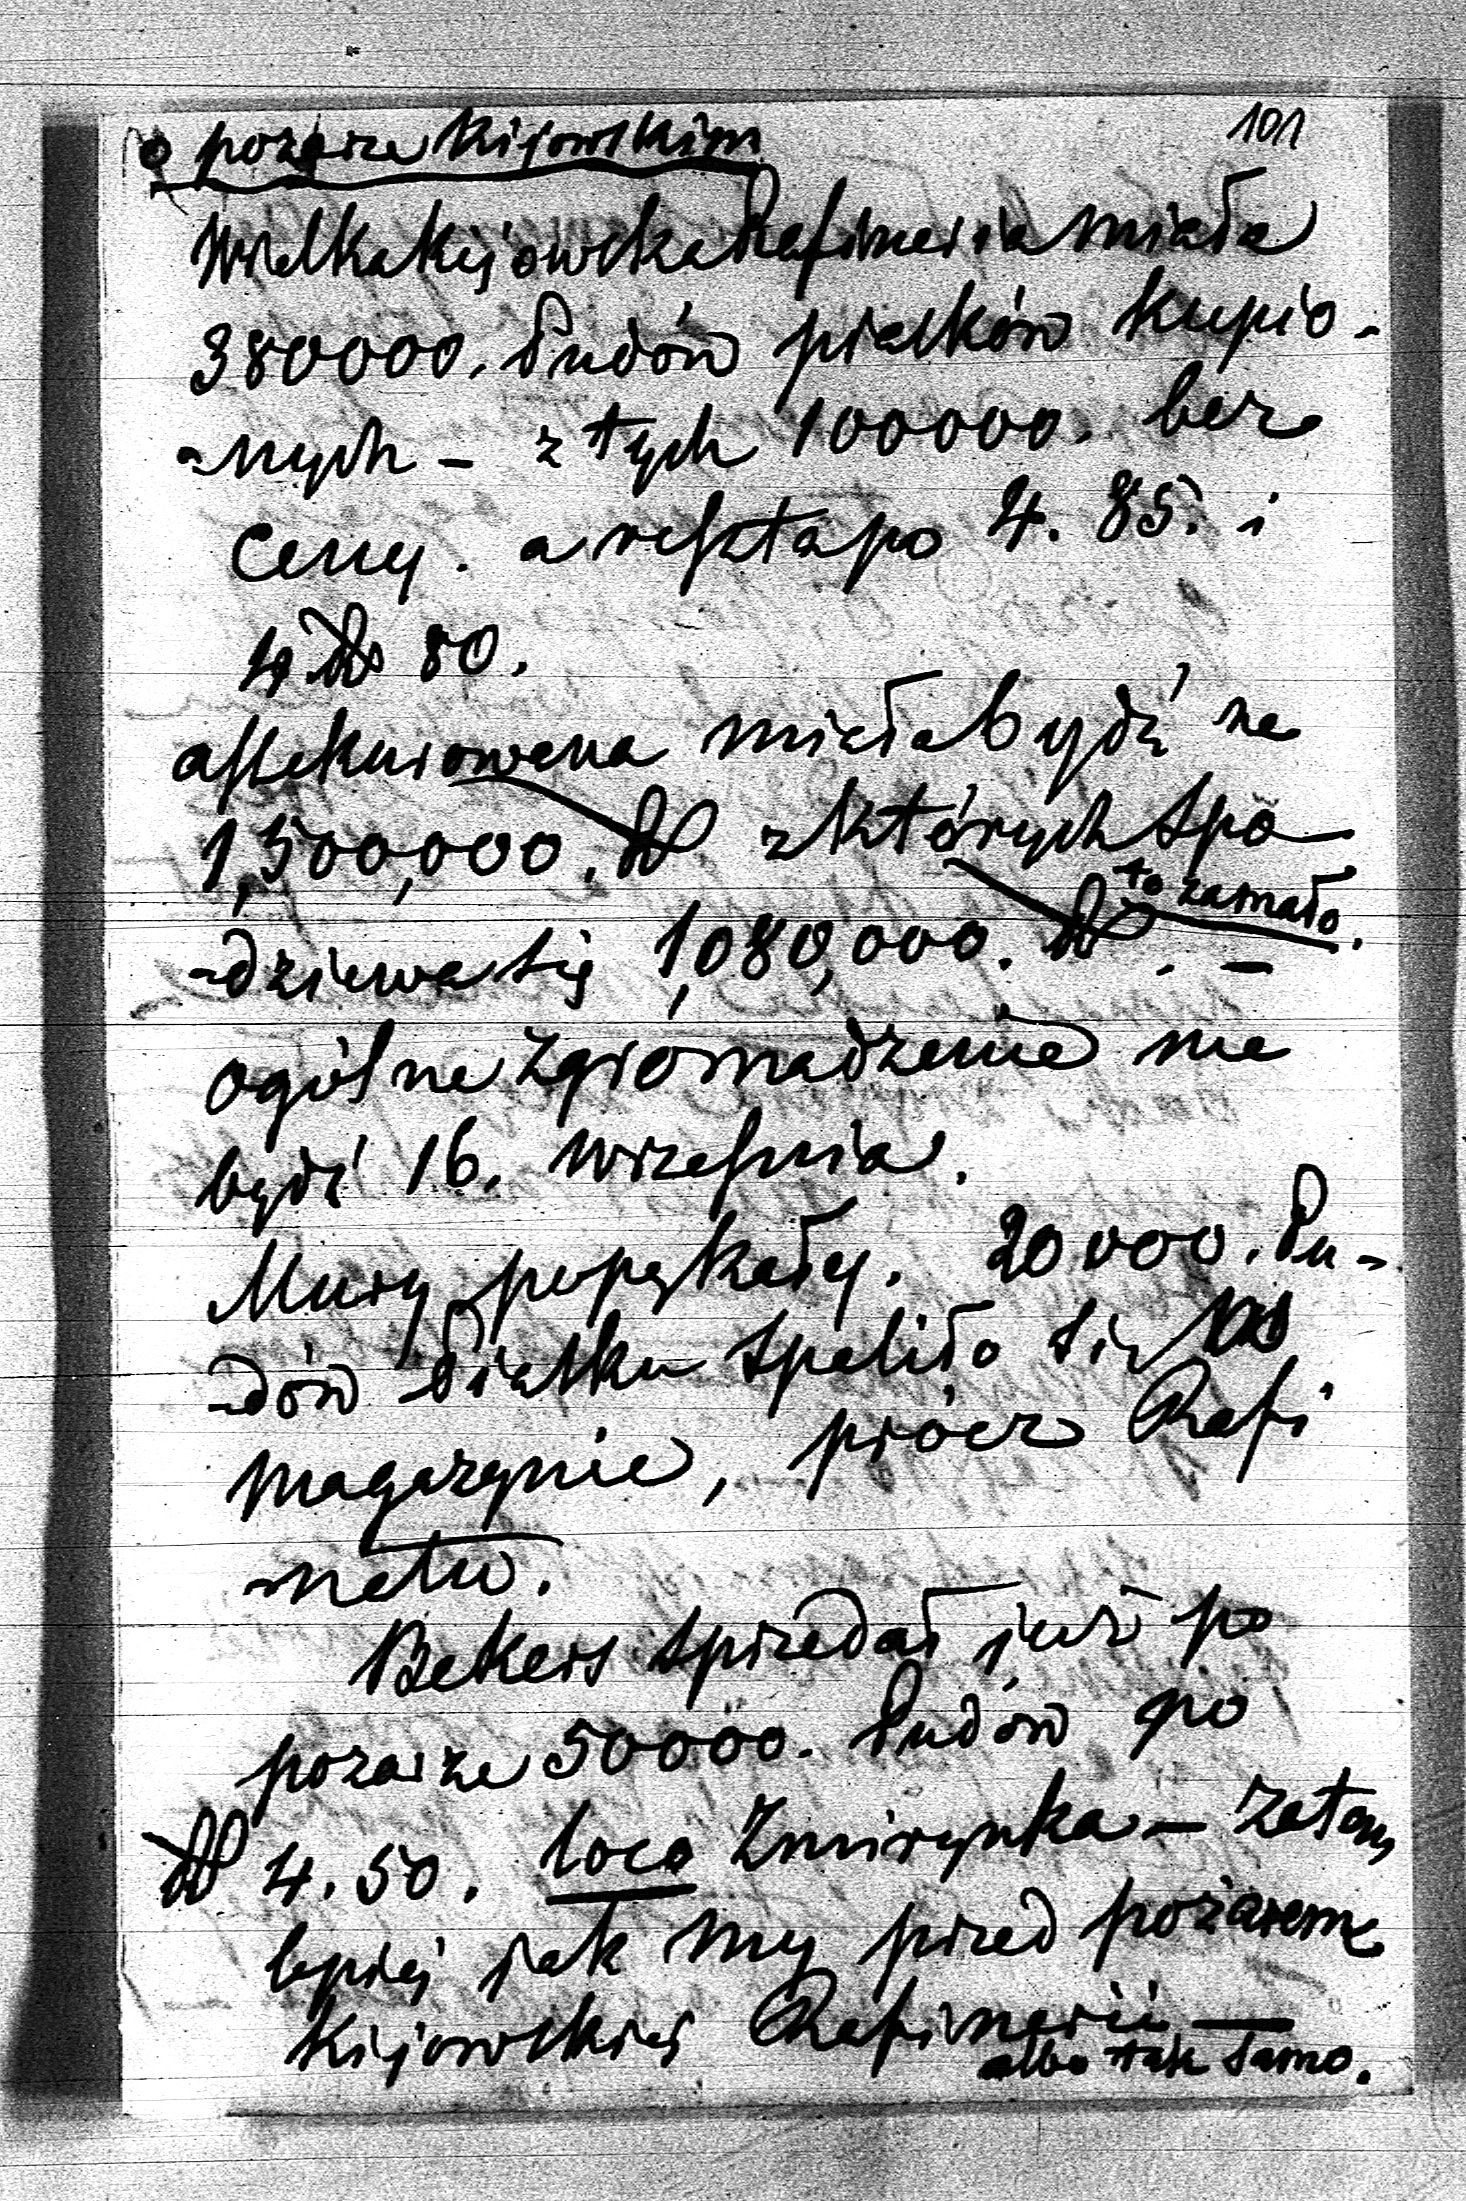 101
o pożarze Kijowskim
Wielka Kijowska Rafineria miała
380000. Pudów piasków kupio-
-nych - z tych 100000. bez
Ceny. a reszta po 4. 85. i
4 80.
assekurowana miała bydź na
1,500,000. z których spo-
to zamało.
-dziewa się 1,080,000. -
ogólne zgromadzenie ma
bydź 16. Września.
Mury popękały. 20000. Pu-
-dów Piasku spaliło się w
magazynie, prócz Rafi
-natu.
Bekers sprzedał już po
pożarze 50000. Pudów po
4. 50. loco Żmirynka - zatem
lepiej jak my przed pożarem
Kijowskiej Rafinerii -
albo tak samo.